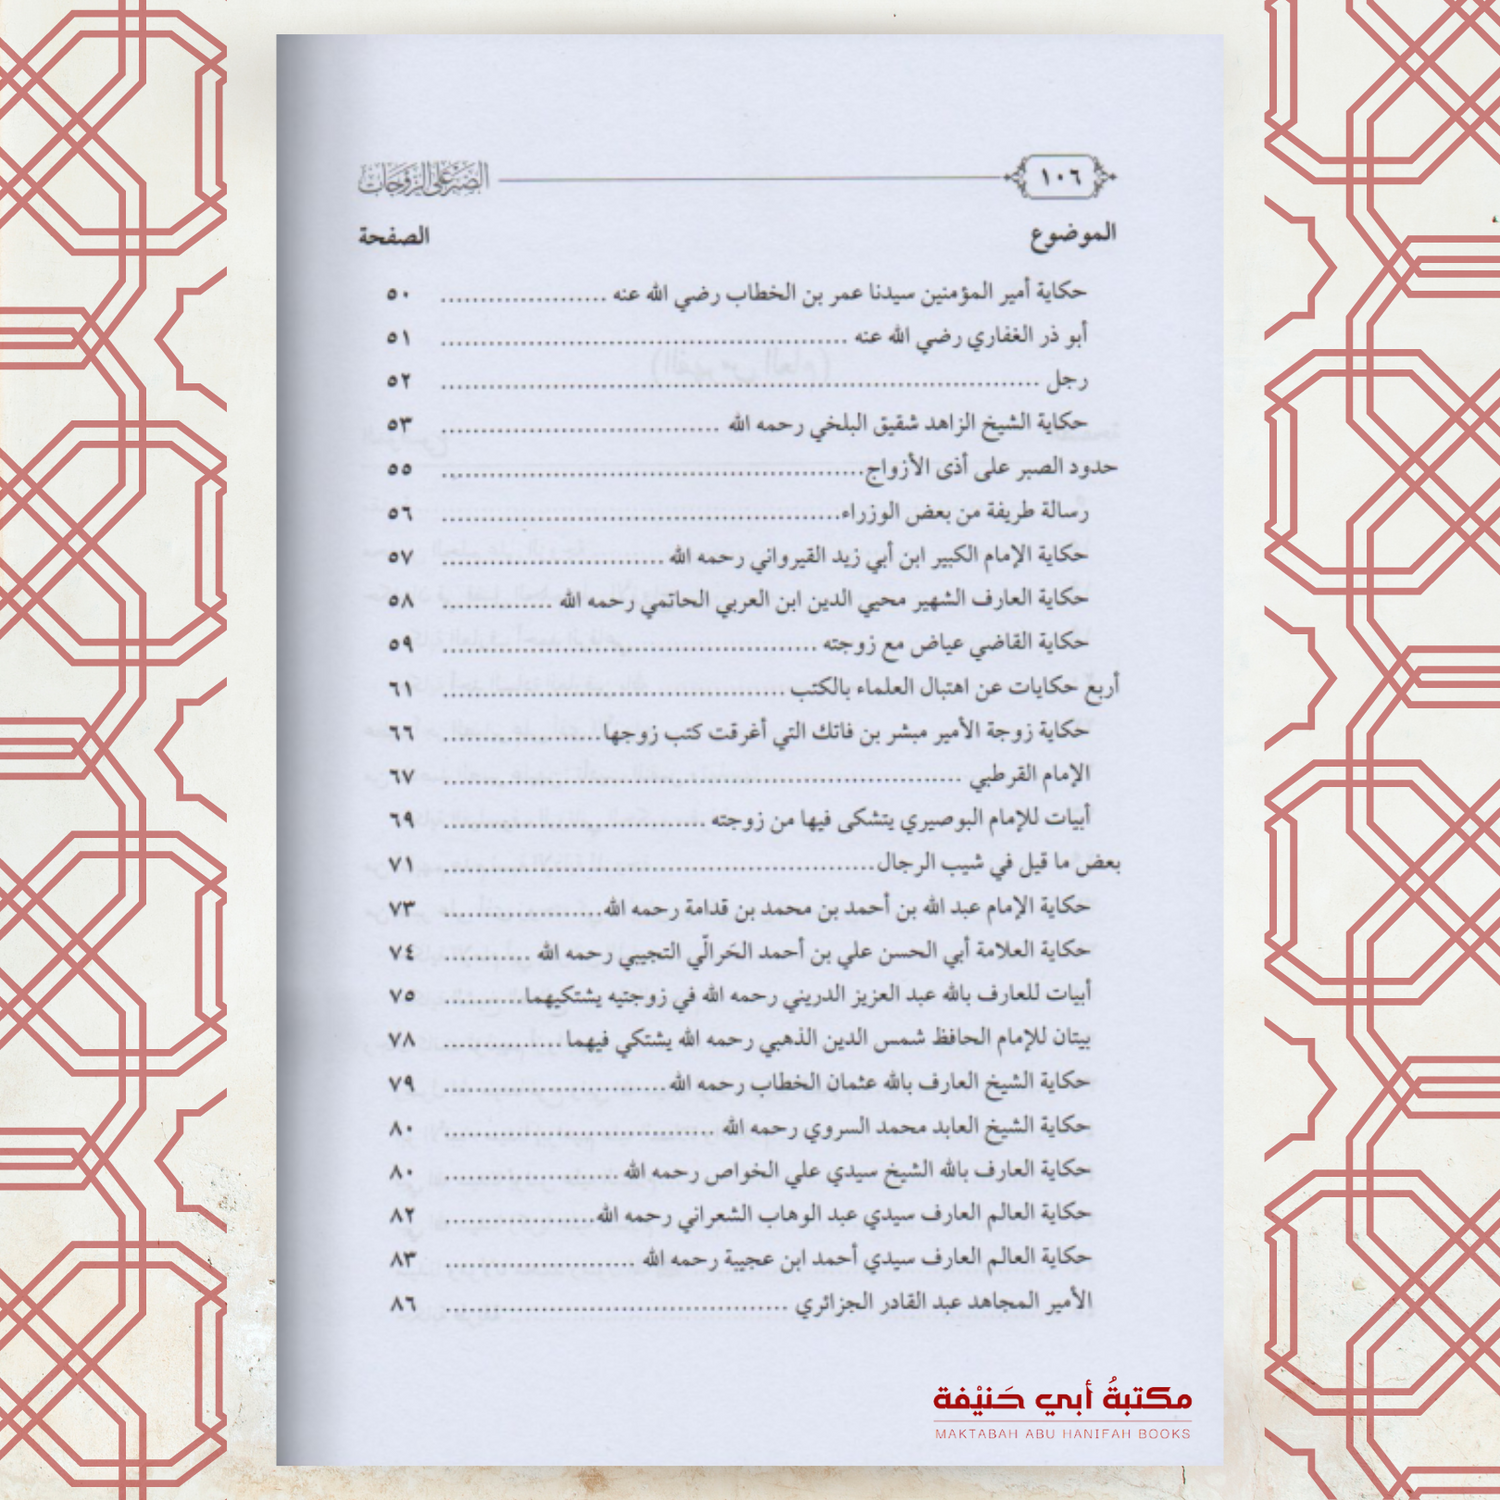 ١٠٦ الصبر على الزوجات
الموضوع الصفحة
حكاية أمير المؤمنين سيدنا عمر بن الخطاب رضي الله عنه ..................... ٥٠
أبو ذر الغفاري رضي الله عنه .................................................... ٥١
رجل ............................................................................ ٥٢
حكاية الشيخ الزاهد شقيق البلخي رحمه الله ................................... ٥٣
حدود الصبر على أذى الأزواج..................................................... ٥٥
رسالة طريفة من بعض الوزراء.................................................. ٥٦
حكاية الإمام الكبير ابن أبي زيد القيرواني رحمه الله ............................ ٥٧
حكاية العارف الشهير محيي الدين ابن العربي الحاتمي رحمه الله .............. ٥٨
حكاية القاضي عياض مع زوجته ............................................... ٥٩
أربع حكايات عن اهتبال العلماء بالكتب ........................................... ٦١
حكاية زوجة الأمير مبشر بن فاتك التي أغرقت كتب زوجها.................... ٦٦
الإمام القرطبي .................................................................. ٦٧
أبيات للإمام البوصيري يتشكى فيها من زوجته ................................. ٦٩
بعض ما قيل في شيب الرجال...................................................... ٧١
حكاية الإمام عبد الله بن أحمد بن محمد بن قدامة رحمه الله.................... ٧٣
حكاية العلامة أبي الحسن علي بن أحمد الحَرالّي التجيبي رحمه الله ........... ٧٤
أبيات للعارف بالله عبد العزيز الدريني رحمه الله في زوجتيه يشتكيهما.......... ٧٥
بيتان للإمام الحافظ شمس الدين الذهبي رحمه الله يشتكي فيهما ............... ٧٨
حكاية الشيخ العارف بالله عثمان الخطاب رحمه الله............................ ٧٩
حكاية الشيخ العابد محمد السروي رحمه الله .................................. ٨٠
حكاية العارف بالله الشيخ سيدي علي الخواص رحمه الله ...................... ٨٠
حكاية العالم العارف سيدي عبد الوهاب الشعراني رحمه الله................... ٨٢
حكاية العالم العارف سيدي أحمد ابن عجيبة رحمه الله ........................ ٨٣
الأمير المجاهد عبد القادر الجزائري ........................................... ٨٦
مكتبةُ أبي حَنيْفة
MAKTABAH ABU HANIFAH BOOKS